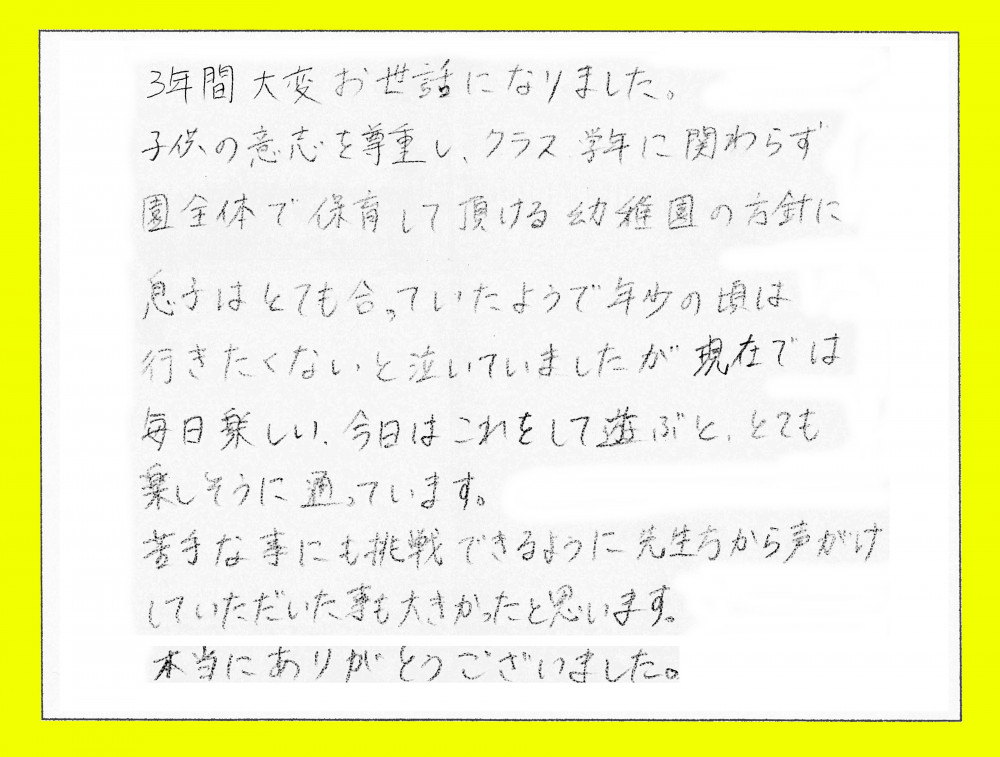 3年間大変お世話になりました。
子供の意志を尊重し、クラス学年に関わらず
園全体で保育して頂ける幼稚園の方針に
息子はとても合っていたようで年少の頃は
行きたくないと泣いていましたが現在では
毎日楽しい、今日はこれをして遊ぶと、とても
楽しそうに通っています。
苦手な事にも挑戦できるように先生方から声がけ
していただいた事も大きかったと思います。
本当にありがとうございました。